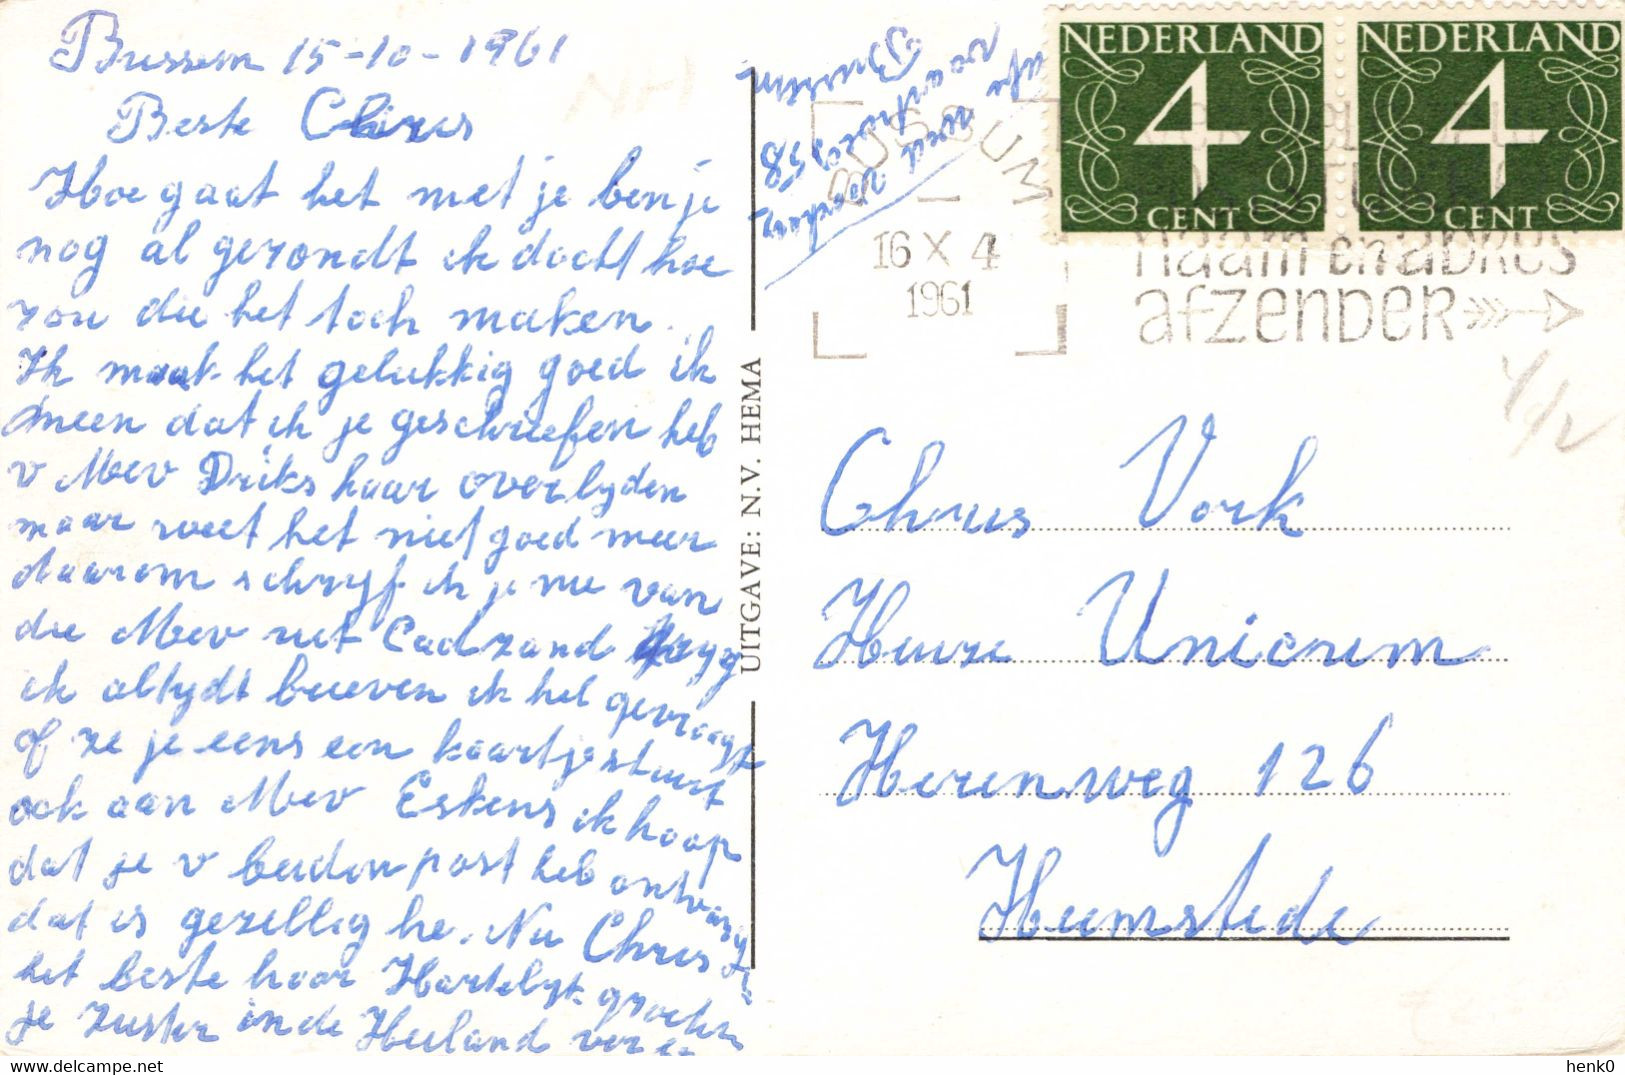 Bussem 15-10-1961
Beste Chrus
Hoe gaat het met je ben je
nog al gezondt ik docht hoe
zou die het toch maken.
Ik maak het gelukkig goed ik
meen dat ik je geschriefen heb
v Mev Driks haar overlyden
maar weet het niet goed meer
daarom schryf ik je nu van
die Mev uit Cadzand kryg
ik altydt brieven ik heb gevraagt
of ze je eens een kaartje stuurt
ook aan Mev Eskens ik hoop
dat je v beiden post heb ontvang
dat is gezellig he. Nu Chrus
het beste hoor Hartelyk groeten
je zuster in de Heiland
afz
Bussum
UITGAVE: N.V. HEMA
NH
NEDERLAND
4
CENT
NEDERLAND
4
CENT
BUSSUM
16 X 4
1961
naam en adres
afzender
Chrus Vork
Huize Unicum
Herenweg 126
Heemstede
henk0
https://www.delcampe.net